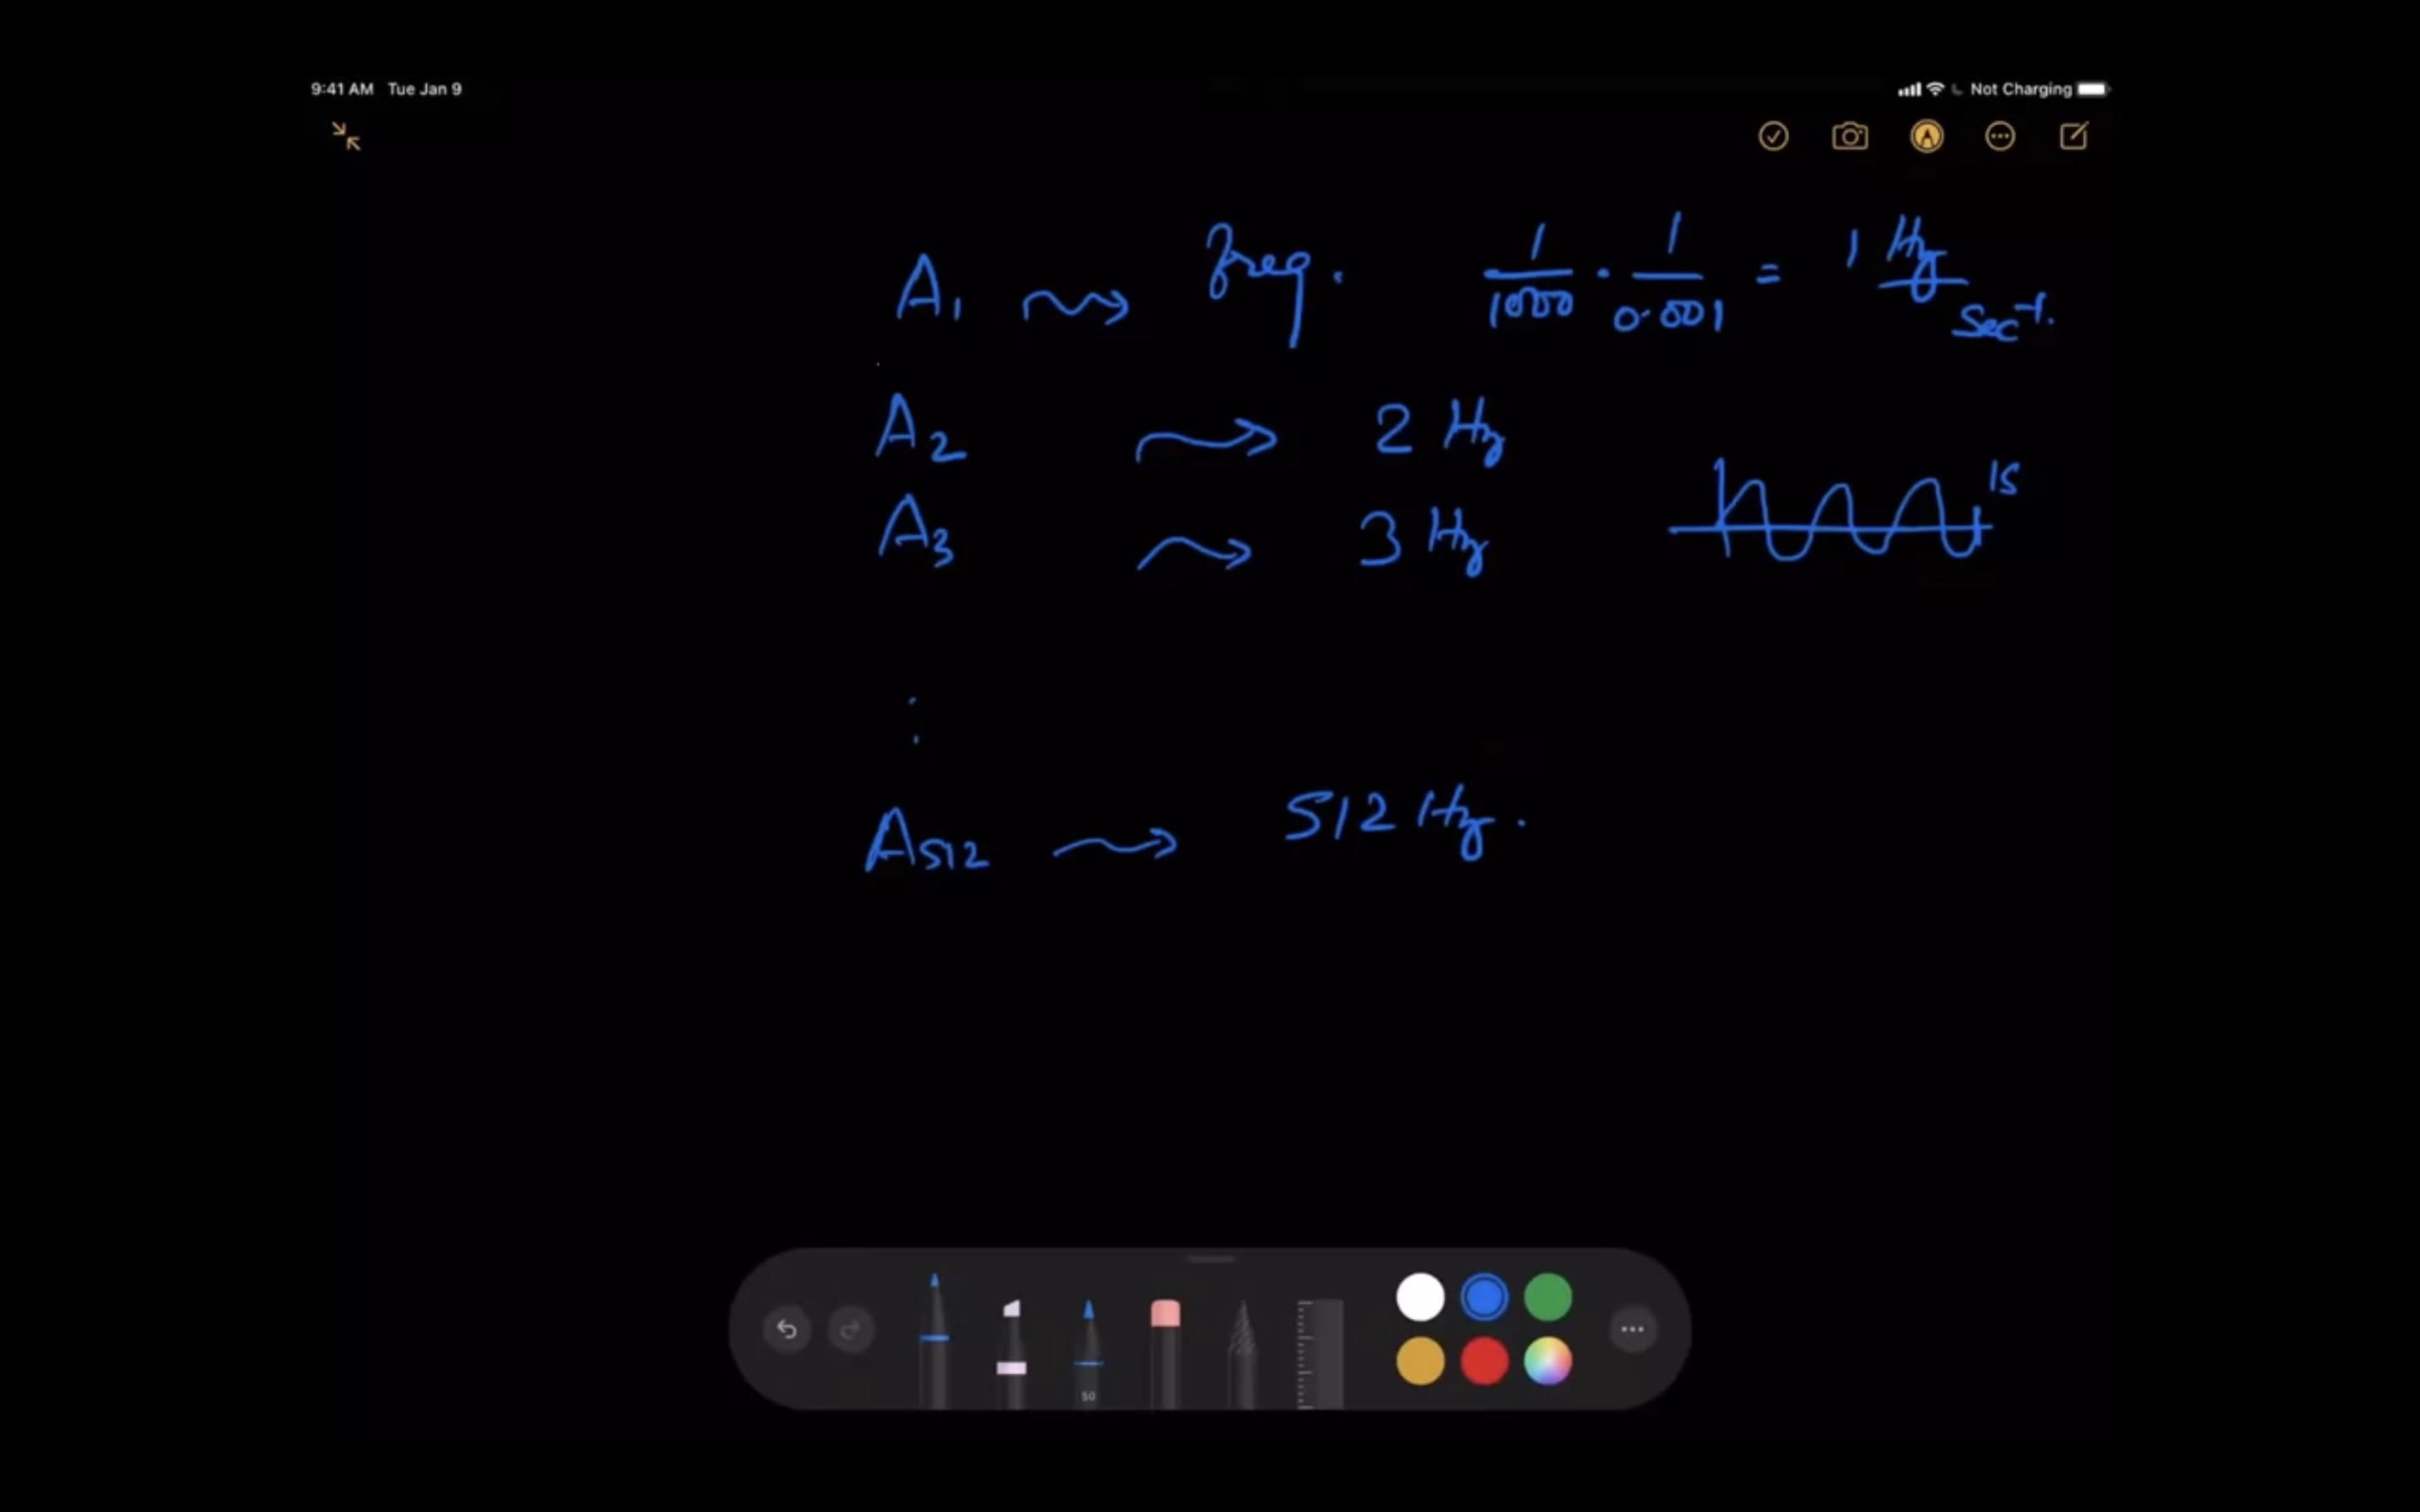 9:41 AM Tue Jan 9 Not Charging
A1 freq. 1/1000 · 1/0.001 = 1 Hz sec⁻¹.
A2 → 2 Hz
1s
A3 → 3 Hz
:
A512 → 512 Hz.
50